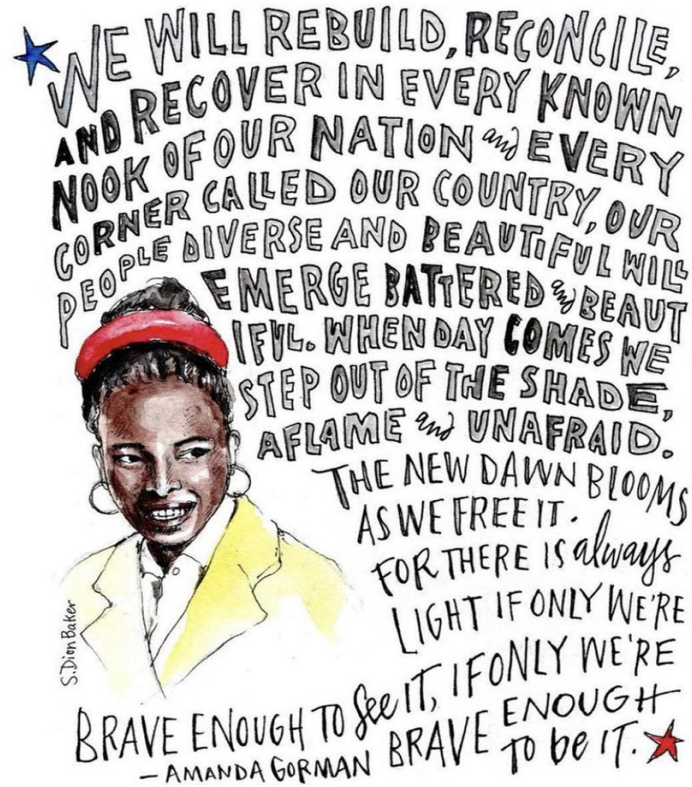 WE WILL REBUILD, RECONCILE,
AND RECOVER IN EVERY KNOWN
NOOK OF OUR NATION and EVERY
CORNER CALLED OUR COUNTRY, OUR
PEOPLE DIVERSE AND BEAUTIFUL WILL
EMERGE BATTERED and BEAUT
IFUL. WHEN DAY COMES WE
STEP OUT OF THE SHADE,
AFLAME and UNAFRAID.
THE NEW DAWN BLOOMS
AS WE FREE IT.
FOR THERE IS always
LIGHT IF ONLY WE'RE
BRAVE ENOUGH TO See IT, IF ONLY WE'RE
BRAVE ENOUGH
TO be IT.
– AMANDA GORMAN
S. Dion Baker